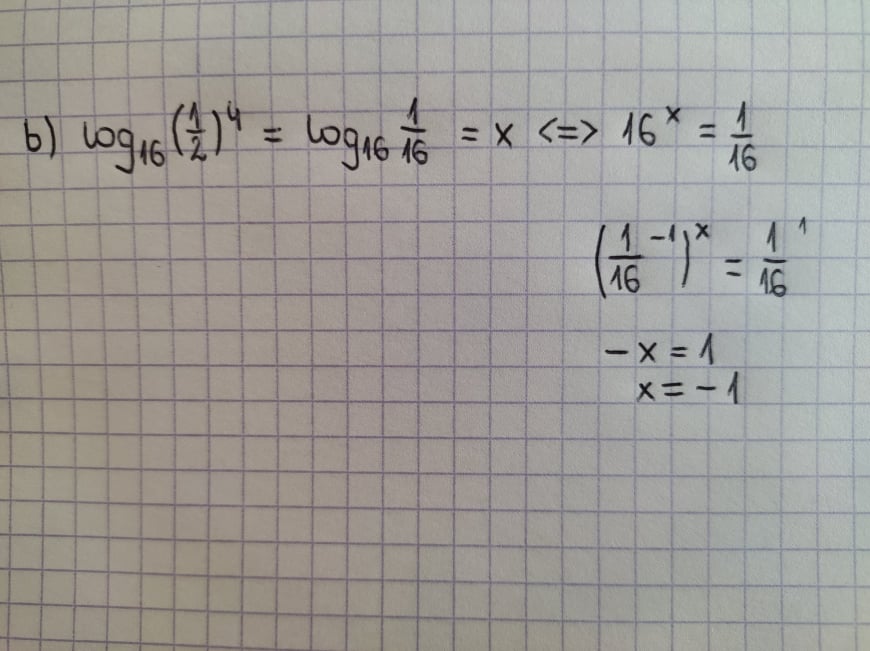 b) log₁₆(1/2)⁴ = log₁₆ 1/16 = x <=> 16ˣ = 1/16
(1/16⁻¹)ˣ = 1/16¹
-x = 1
x = -1